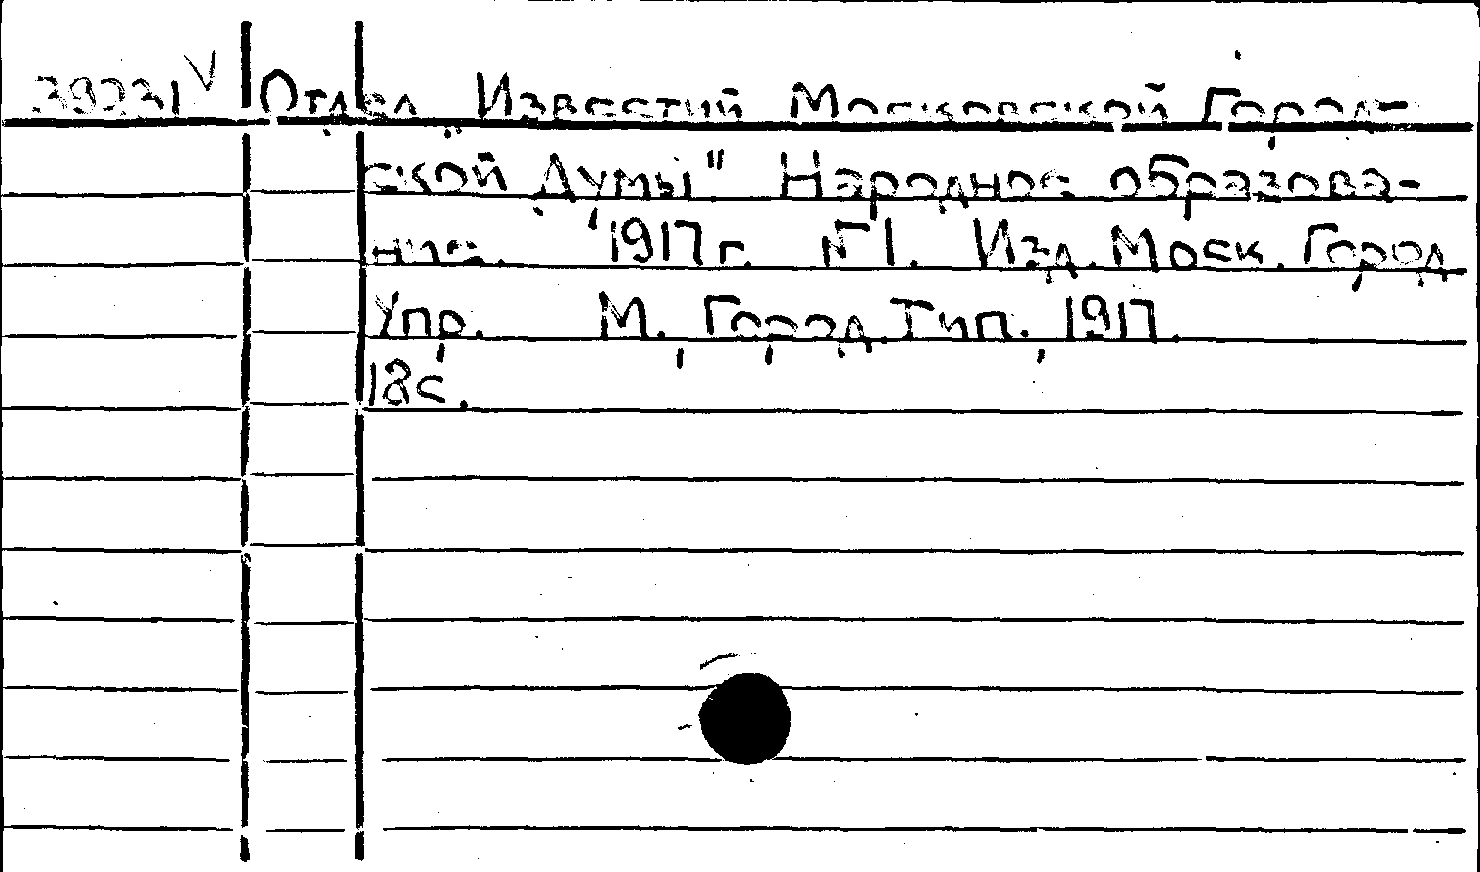 39231 V Отдел „Известий Московской Город-
ской Думы" Народное образова-
ние. 1917 г. №1. Изд. Моск. Город
Упр. М. Город. Тип. 1917.
18 с.